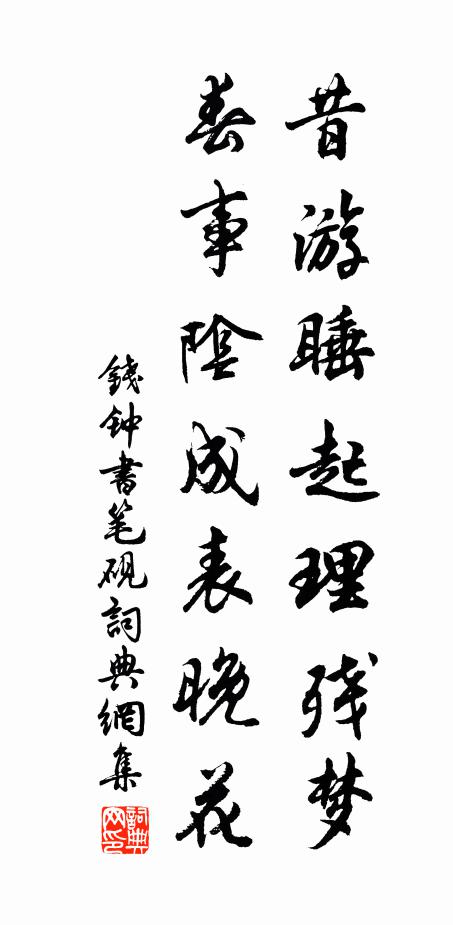 昔游睡起理残梦
春事陰成表晚花
錢钟書笔砚詞典網集
詞典网印